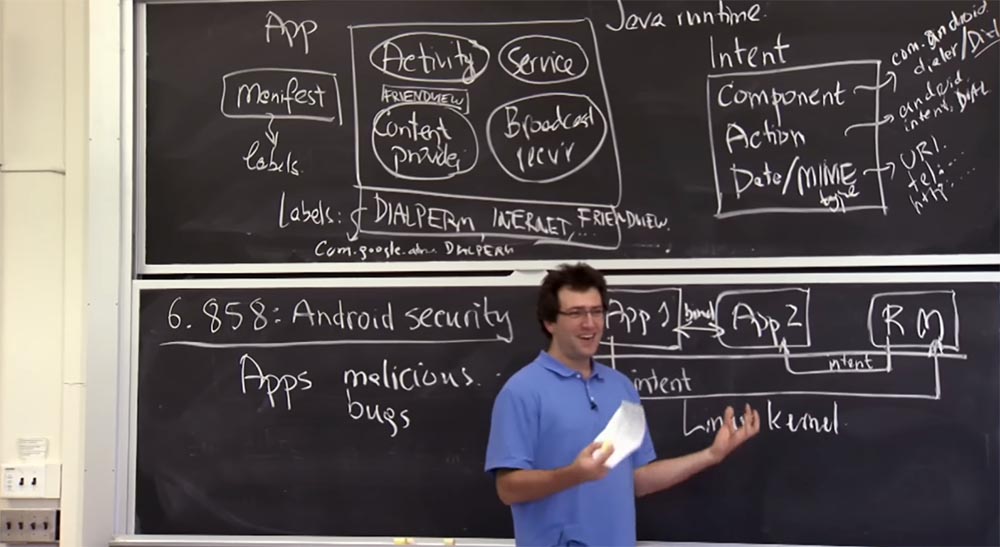 App
Manifest
labels.
Activity
Service
FRIENDVIEW
Content
provider
Broadcast
Labels:
DIALPERM, INTERNET, ... FRIENDVIEW.
DIALPERM
Java runtime.
Intent
Component
Action
Date/MIME
type
com.android
dialer/
android.
intent. DIAL
URI.
tel:.....
http:.....
6.858: Android security
Apps malicious.
bugs
App 1
App 2
RM
intent
intent
Linux kernel.